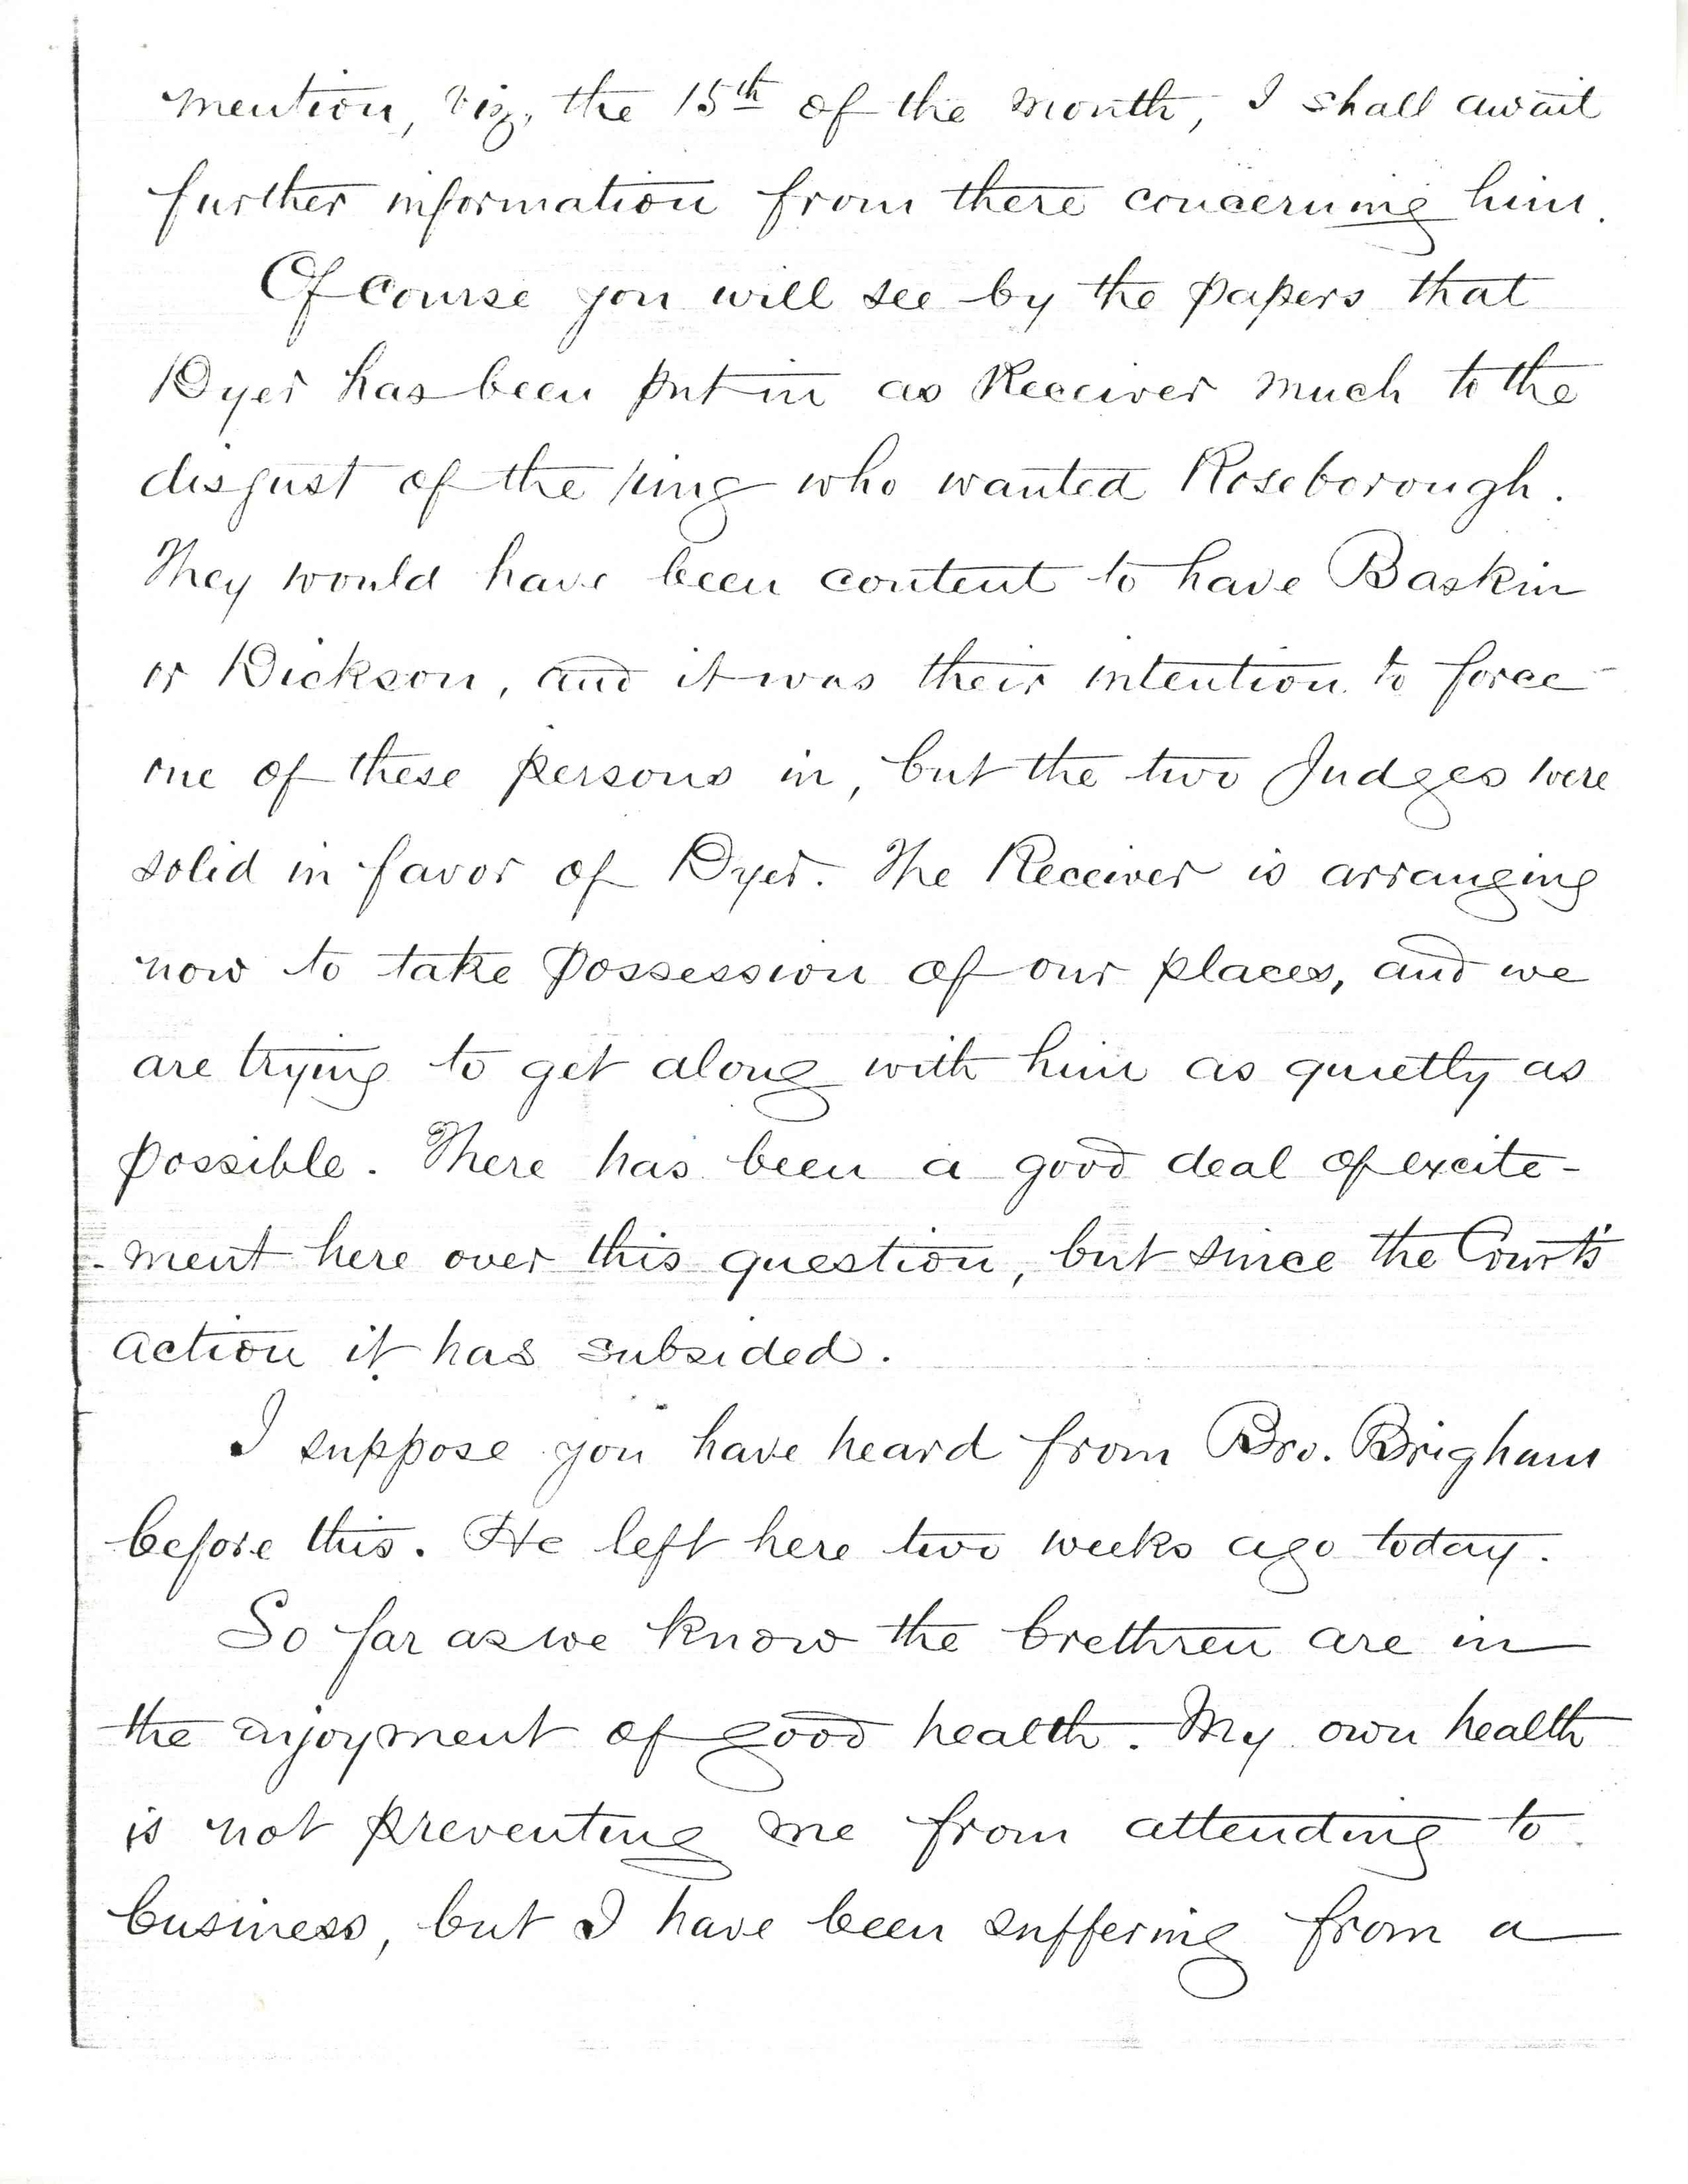 mention, viz, the 15th of the month, I shall await
further information from there concerning him.
Of course you will see by the papers that
Dyer has been put in as Receiver much to the
disgust of the ring who wanted Roseborough.
They would have been content to have Baskin
or Dickson, and it was their intention to force
one of these persons in, but the two Judges were
solid in favor of Dyer. The Receiver is arranging
now to take possession of our places, and we
are trying to get along with him as quietly as
possible. There has been a good deal of excite-
ment here over this question, but since the Court's
action it has subsided.
I suppose you have heard from Bro. Brigham
before this. He left here two weeks ago today.
So far as we know the brethren are in
the enjoyment of good health. My own health
is not preventing me from attending to
business, but I have been suffering from a